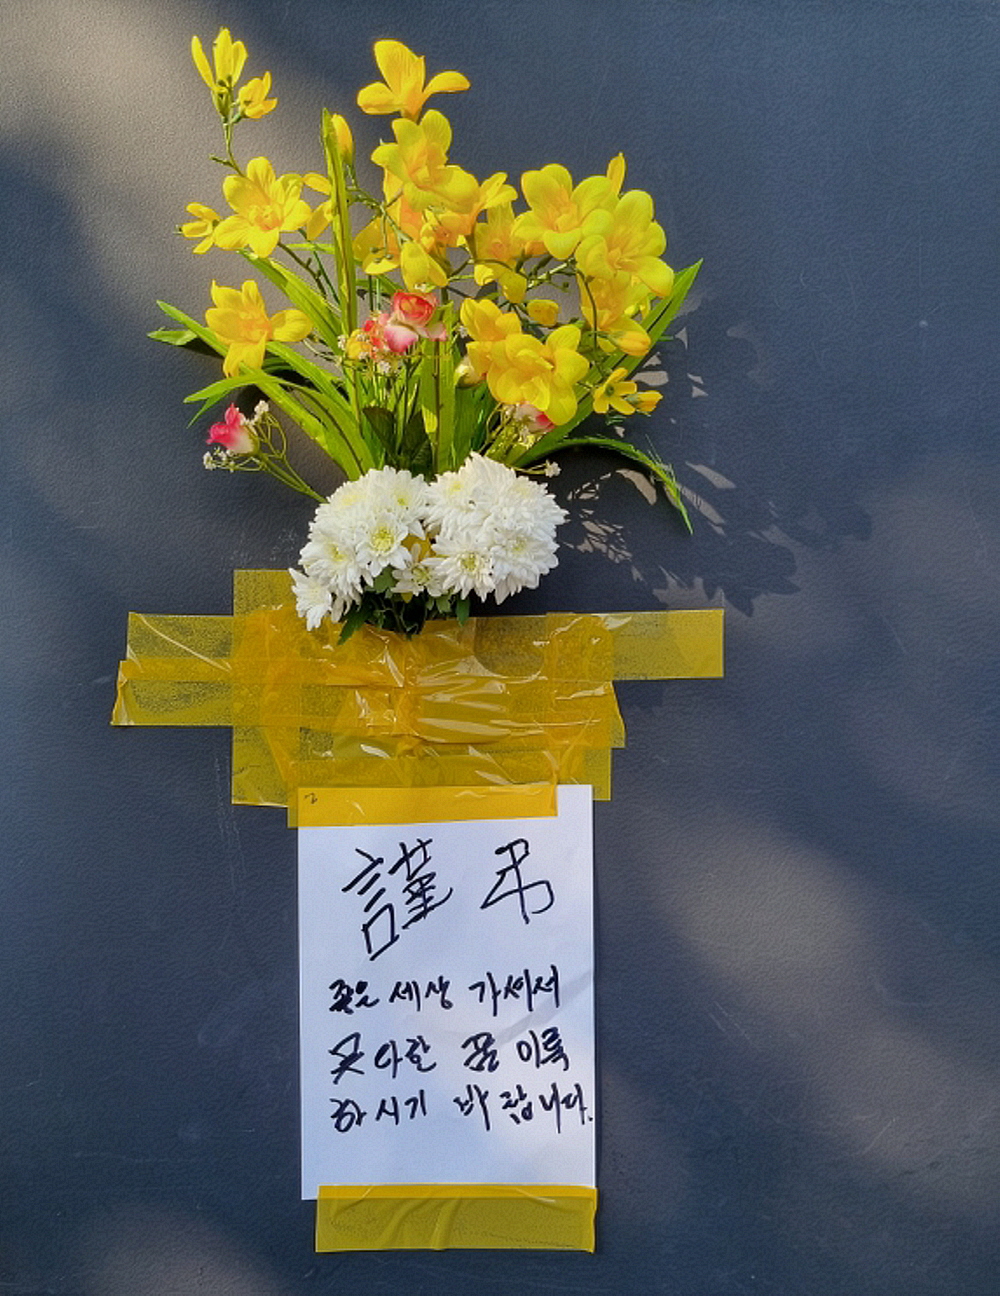 謹弔
좋은 세상 가셔서
못다한 꿈 이룩
하시기 바랍니다.